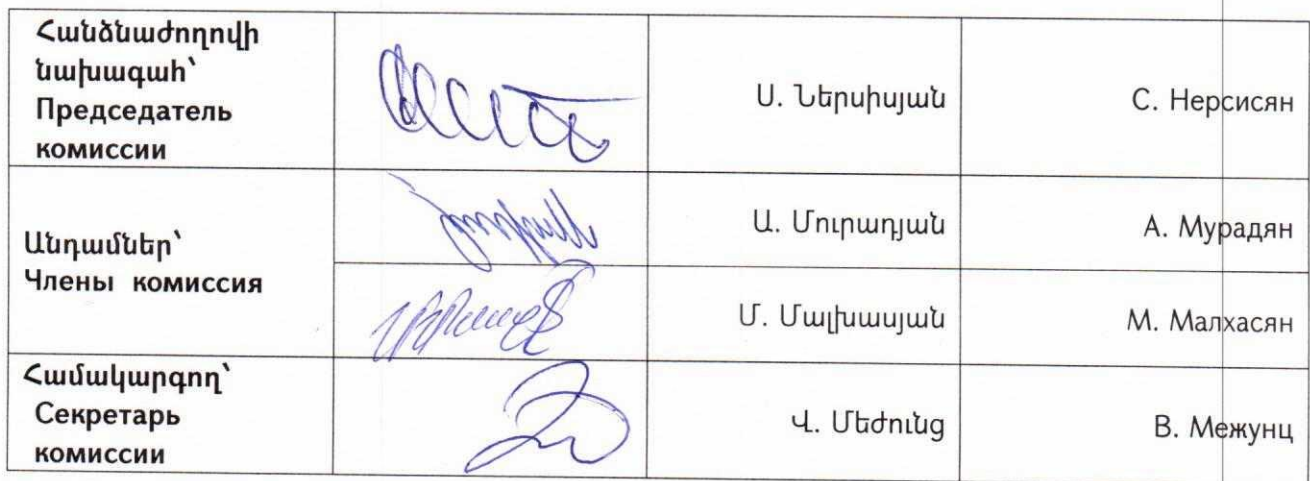 Հանձնաժողովի
նախագահ՝
Председатель
комиссии
Ս. Ներսիսյան
С. Нерсисян
Անդամներ՝
Члены комиссия
Ա. Մուրադյան
А. Мурадян
Մ. Մալխասյան
М. Малхасян
Համակարգող՝
Секретарь
комиссии
Վ. Մեժունց
В. Межунц